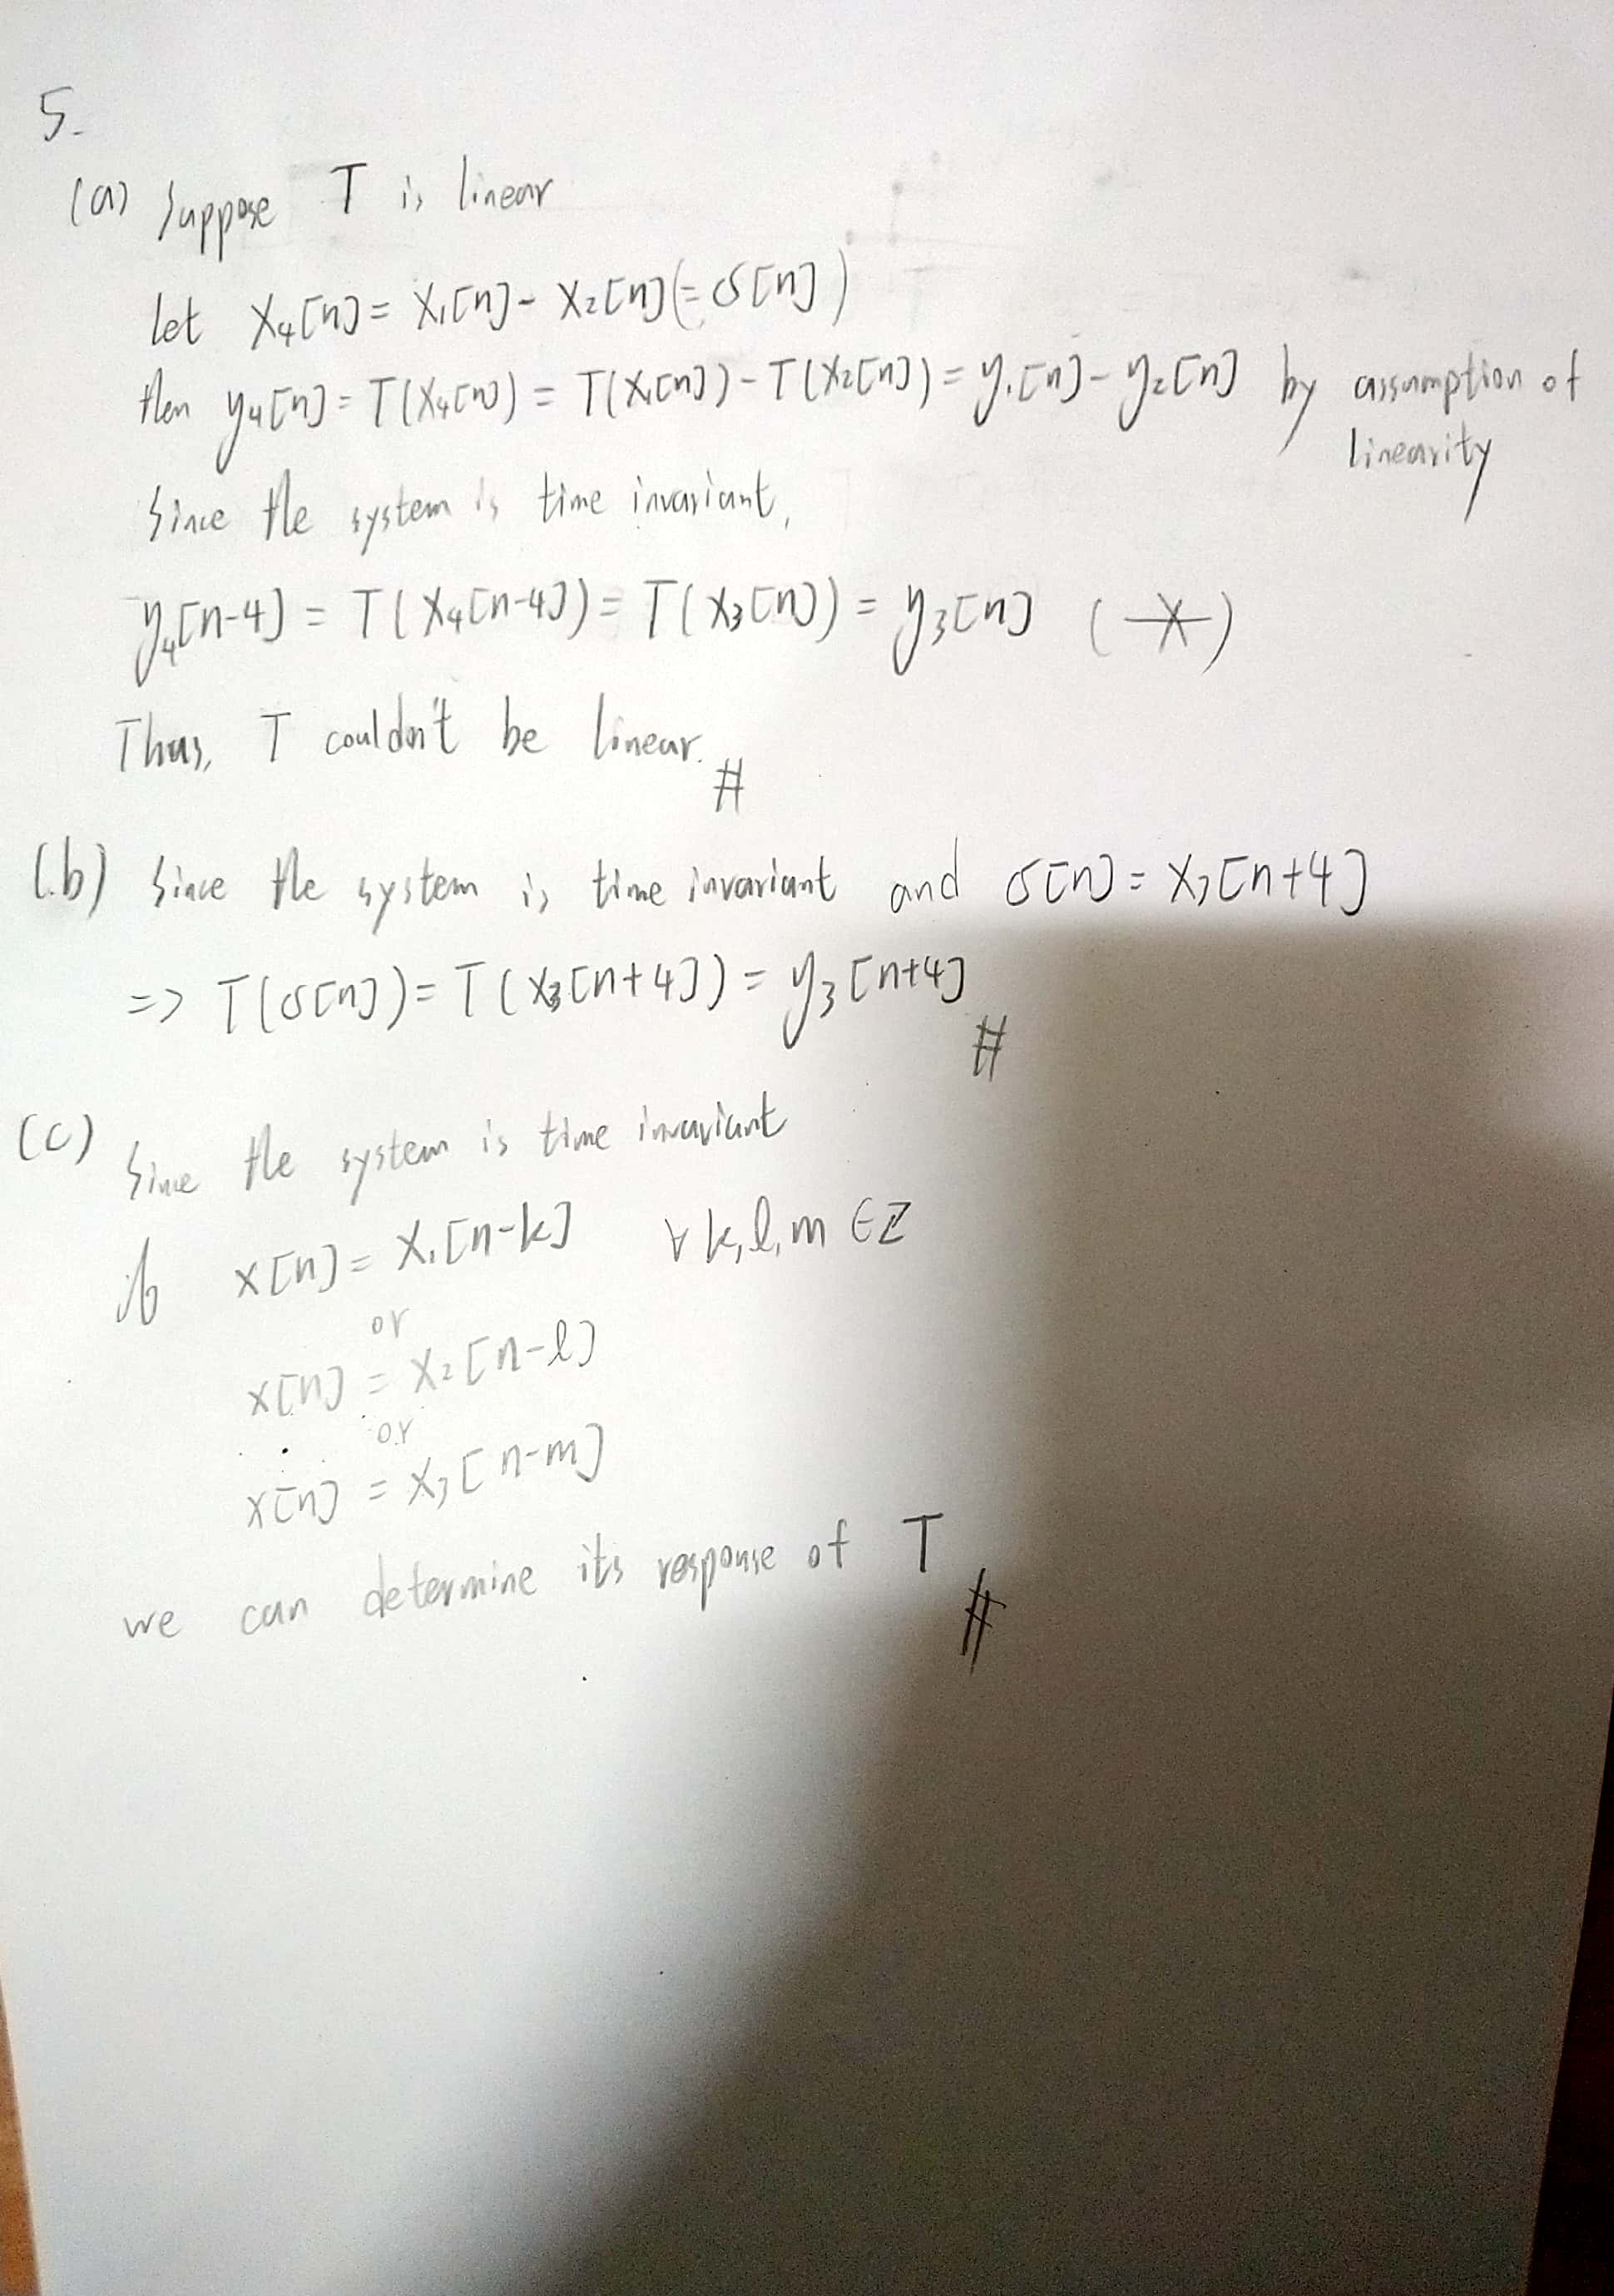 5.
(a) Suppose T is linear
let X₄[n] = X₁[n] - X₂[n] (= δ[n])
then y₄[n] = T(X₄[n]) = T(X₁[n]) - T(X₂[n]) = y₁[n] - y₂[n] by assumption of
linearity
Since the system is time invariant,
y₄[n-4] = T(X₄[n-4]) = T(X₃[n]) = y₃[n] (→X←)
Thus, T couldn't be linear. #
(b) Since the system is time invariant and δ[n] = X₃[n+4]
=> T(δ[n]) = T(X₃[n+4]) = y₃[n+4] #
(c) Since the system is time invariant
if x[n] = X₁[n-k] ∀ k, l, m ∈ Z
or
x[n] = X₂[n-l]
or
x[n] = X₃[n-m]
we can determine its response of T #